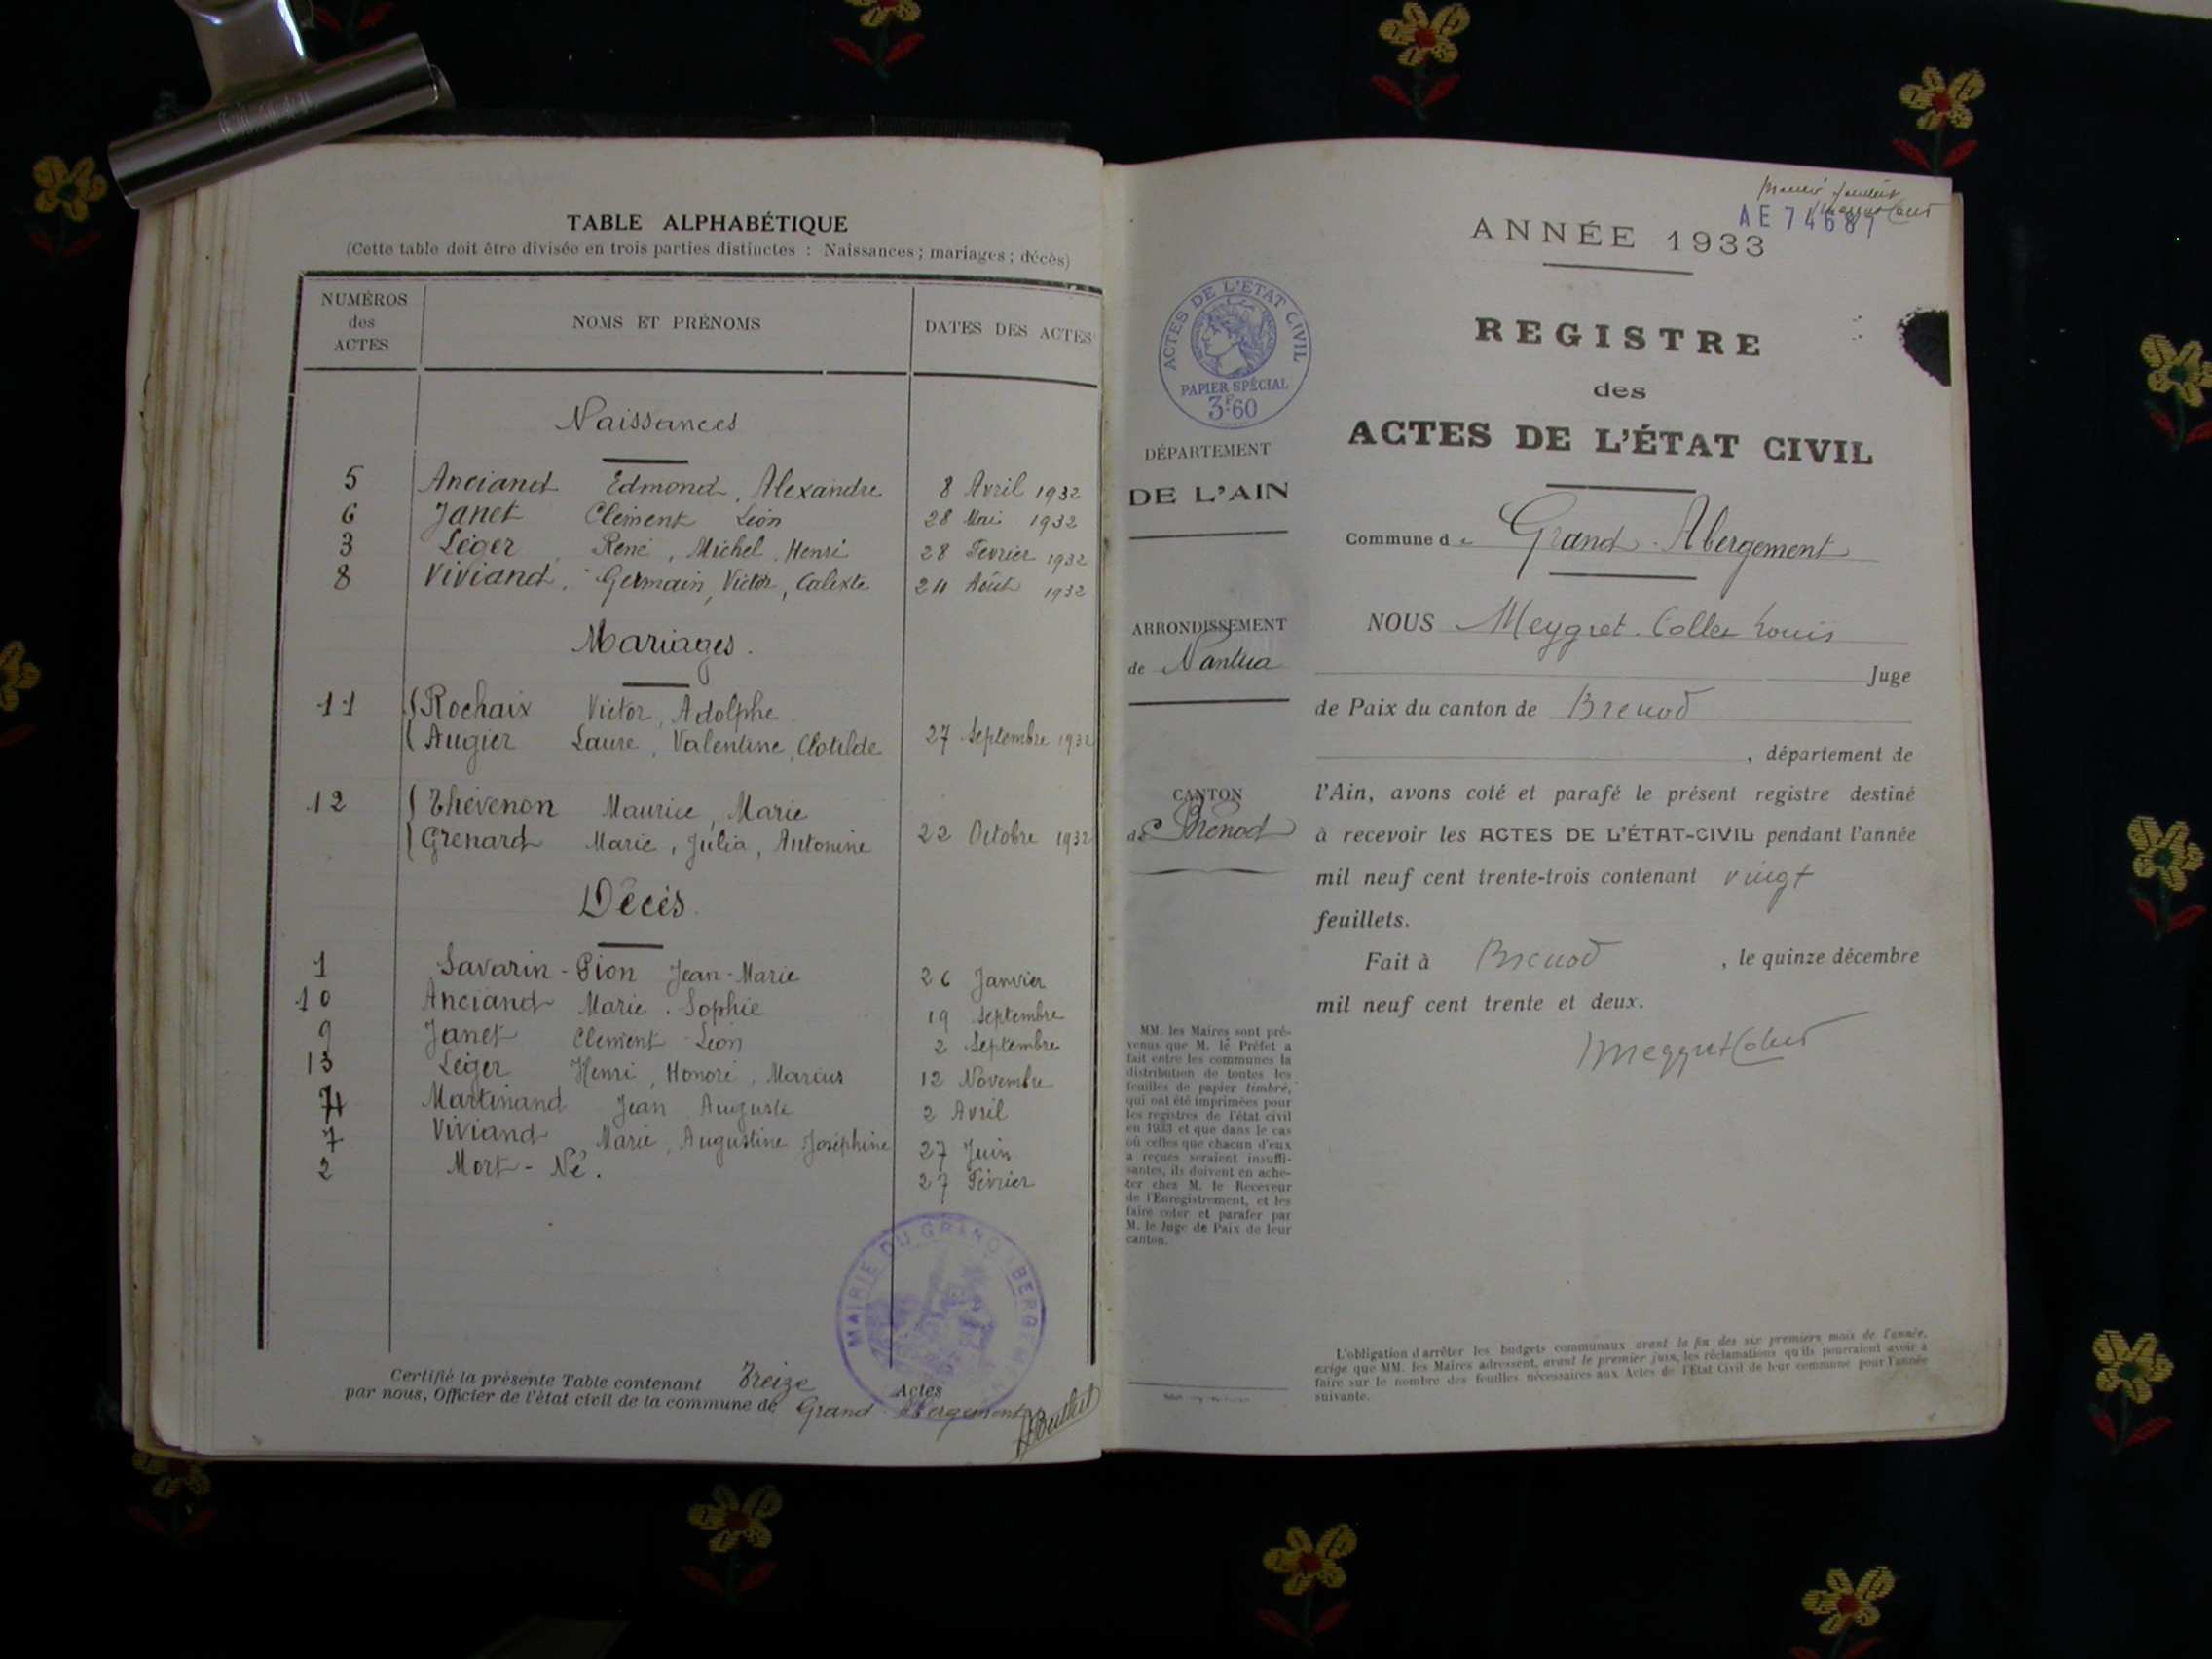 TABLE ALPHABÉTIQUE
(Cette table doit être divisée en trois parties distinctes : Naissances ; mariages ; décès)
NUMÉROS des ACTES
NOMS ET PRÉNOMS
DATES DES ACTES
Naissances
5 Anciand Edmond, Alexandre 8 Avril 1932
6 Janet Clément Léon 28 Mai 1932
3 Léger René, Michel, Henri 28 Février 1932
8 Viviand, Germain, Victor, Calixte 24 Août 1932
Mariages.
11 Rochaix Victor, Adolphe
Augier Laure, Valentine, Clotilde 27 Septembre 1932
12 Thévenon Maurice, Marie
Grenard Marie, Julia, Antonine 22 Octobre 1932
Décès.
1 Savarin-Pion Jean-Marie 26 Janvier
10 Anciand Marie. Sophie 19 Septembre
9 Janet Clément Léon 2 Septembre
13 Léger Henri, Honoré, Marius 12 Novembre
4 Martinand Jean Auguste 2 Avril
7 Viviand Marie, Augustine Joséphine 27 Juin
2 Mort-Né. 27 Février
MAIRIE DU GRAND ABERGEMENT
Certifié la présente Table contenant Treize Actes
par nous, Officier de l'état civil de la commune de Grand Abergement
AE 74687
ANNÉE 1933
REGISTRE
des
ACTES DE L'ÉTAT CIVIL
ACTES DE L'ÉTAT CIVIL
PAPIER SPÉCIAL
3F60
DÉPARTEMENT
DE L'AIN
Commune de Grand-Abergement
ARRONDISSEMENT
de Nantua
CANTON
de Brénod
NOUS Meygret-Collet Louis
Juge
de Paix du canton de Brenod
, département de
l'Ain, avons coté et parafé le présent registre destiné
à recevoir les ACTES DE L'ÉTAT-CIVIL pendant l'année
mil neuf cent trente-trois contenant vingt
feuillets.
Fait à Brenod , le quinze décembre
mil neuf cent trente et deux.
MM. les Maires sont pré-
venus que M. le Préfet a
fait entre les communes la
distribution de toutes les
feuilles de papier timbré,
qui ont été imprimées pour
les registres de l'état civil
en 1933 et que dans le cas
où celles que chacun d'eux
a reçues seraient insuffi-
santes, ils doivent en ache-
ter chez M. le Receveur
de l'Enregistrement, et les
faire coter et parafer par
M. le Juge de Paix de leur
canton.
L'obligation d'arrêter les budgets communaux avant la fin des six premiers mois de l'année,
exige que MM. les Maires adressent, avant le premier juin, les réclamations qu'ils pourraient avoir à
faire sur le nombre des feuilles nécessaires aux Actes de l'Etat Civil de leur commune pour l'année
suivante.